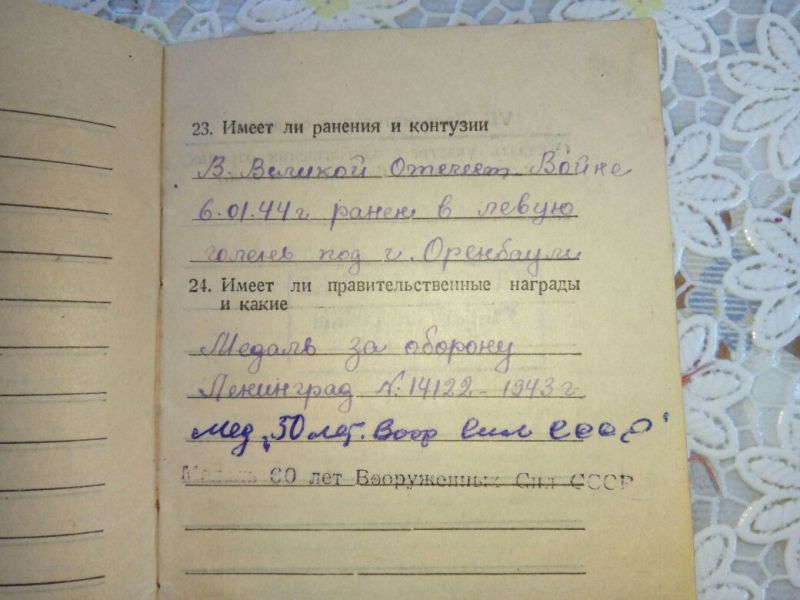 23. Имеет ли ранения и контузии
В Великой Отечест. Войне
6.01.44 г ранен в левую
голень под г. Оренбаули
24. Имеет ли правительственные награды
и какие
Медаль за оборону
Ленинград №14122 - 1943 г.
Мед „50 лет. Воор Сил СССР"
Медаль 60 лет Вооруженных Сил СССР